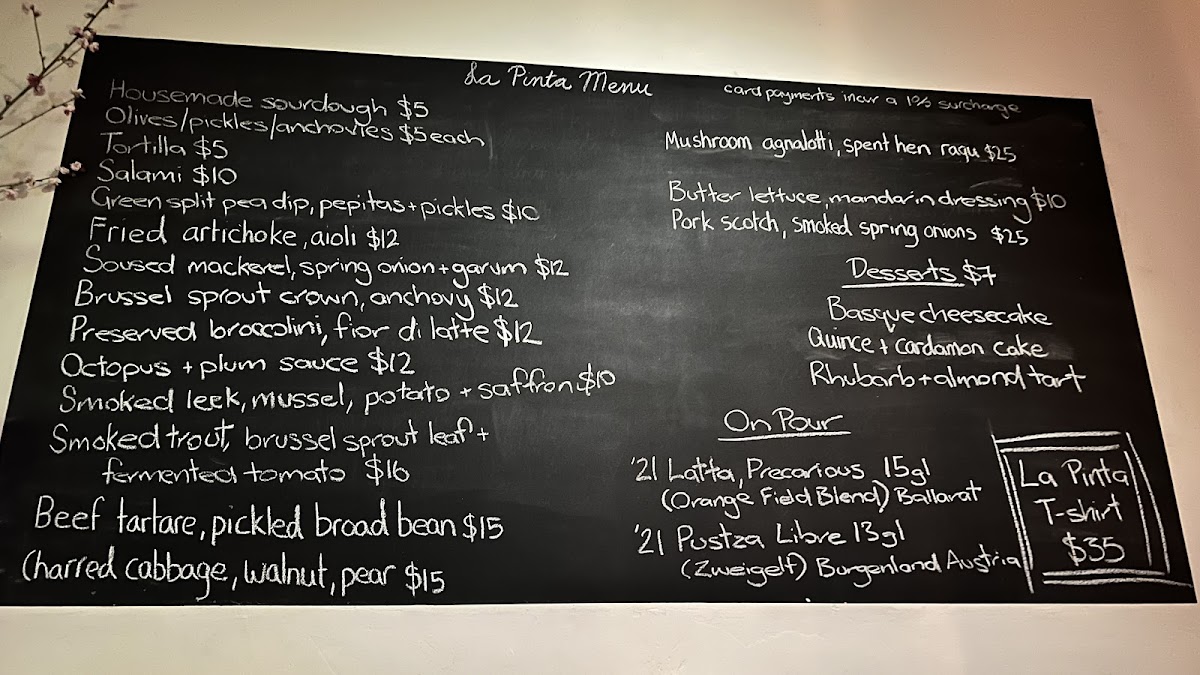 La Pinta Menu
card payments incur a 1% surcharge
Housemade sourdough $5
Olives/pickles/anchovies $5 each
Tortilla $5
Salami $10
Green split pea dip, pepitas + pickles $10
Fried artichoke, aioli $12
Soused mackerel, spring onion + garum $12
Brussel sprout crown, anchovy $12
Preserved broccolini, fior di latte $12
Octopus + plum sauce $12
Smoked leek, mussel, potato + saffron $10
Smoked trout, brussel sprout leaf +
fermented tomato $16
Beef tartare, pickled broad bean $15
Charred cabbage, walnut, pear $15
Mushroom agnalotti, spent hen ragu $25
Butter lettuce, mandarin dressing $10
Pork scotch, smoked spring onions $25
Desserts $7
Basque cheesecake
Quince + cardamon cake
Rhubarb + almond tart
On Pour
'21 Latta, Precarious 15gl
(Orange Field Blend) Ballarat
'21 Pustza Libre 13gl
(Zweigelt) Burgenland Austria
La Pinta
T-shirt
$35